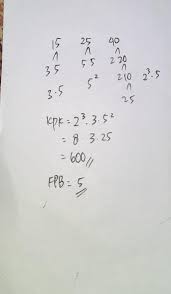 15 25 40
∧ ∧ ∧
3 5 5 5 2 20
∧
3 . 5 5² 2 10 2³ . 5
∧
2 5
KPK = 2³ . 3 . 5²
= 8 3 . 25
= 600 //
FPB = 5